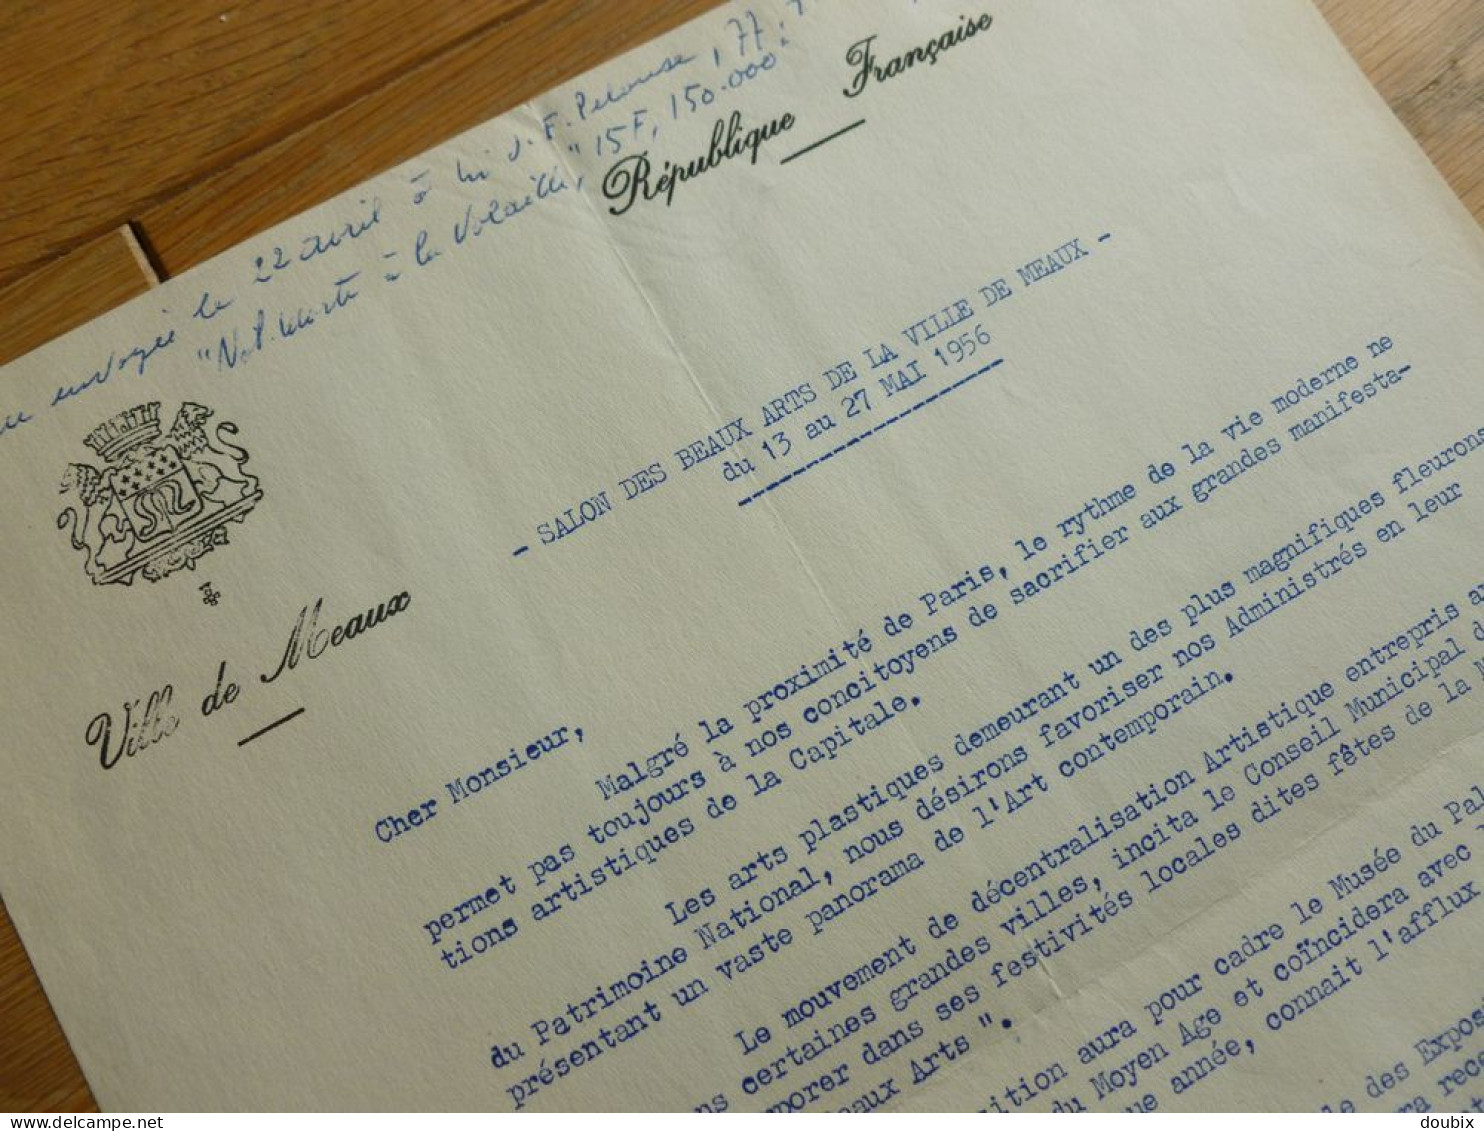 envoyé le 22 avril à J. F. Pelouse, 77
"Nat. Morte à la Volaille," 15F, 150.000
République Française
Ville de Meaux
- SALON DES BEAUX ARTS DE LA VILLE DE MEAUX -
du 13 au 27 MAI 1956
Cher Monsieur,
Malgré la proximité de Paris, le rythme de la vie moderne ne
permet pas toujours à nos concitoyens de sacrifier aux grandes manifesta-
tions artistiques de la Capitale.
Les arts plastiques demeurant un des plus magnifiques fleurons
du Patrimoine National, nous désirons favoriser nos Administrés en leur
présentant un vaste panorama de l'Art contemporain.
Le mouvement de décentralisation Artistique entrepris
certaines grandes villes, incita le Conseil Municipal
dans ses festivités locales dites fêtes de la
Arts ".
aura pour cadre le Musée du
du Moyen Age et coïncidera avec
année, connait l'afflux
des
doubix